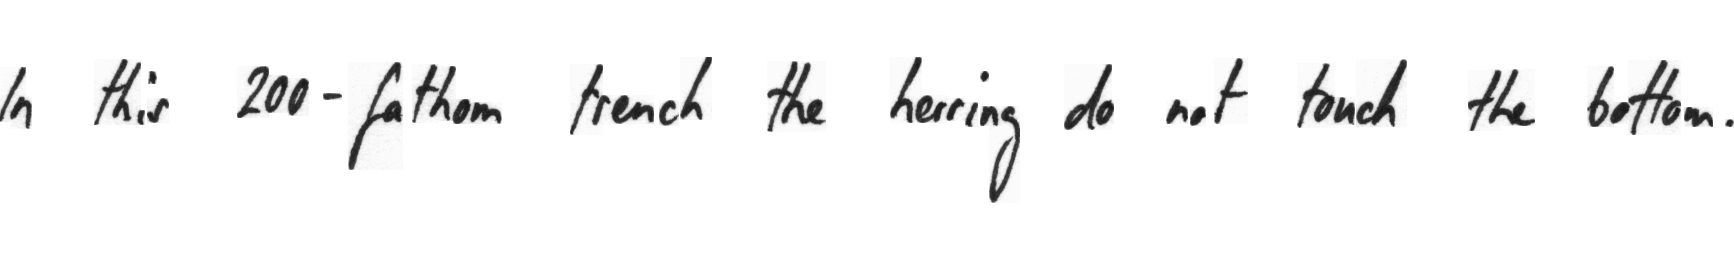 In this 200-fathom trench the herring do not touch the bottom.